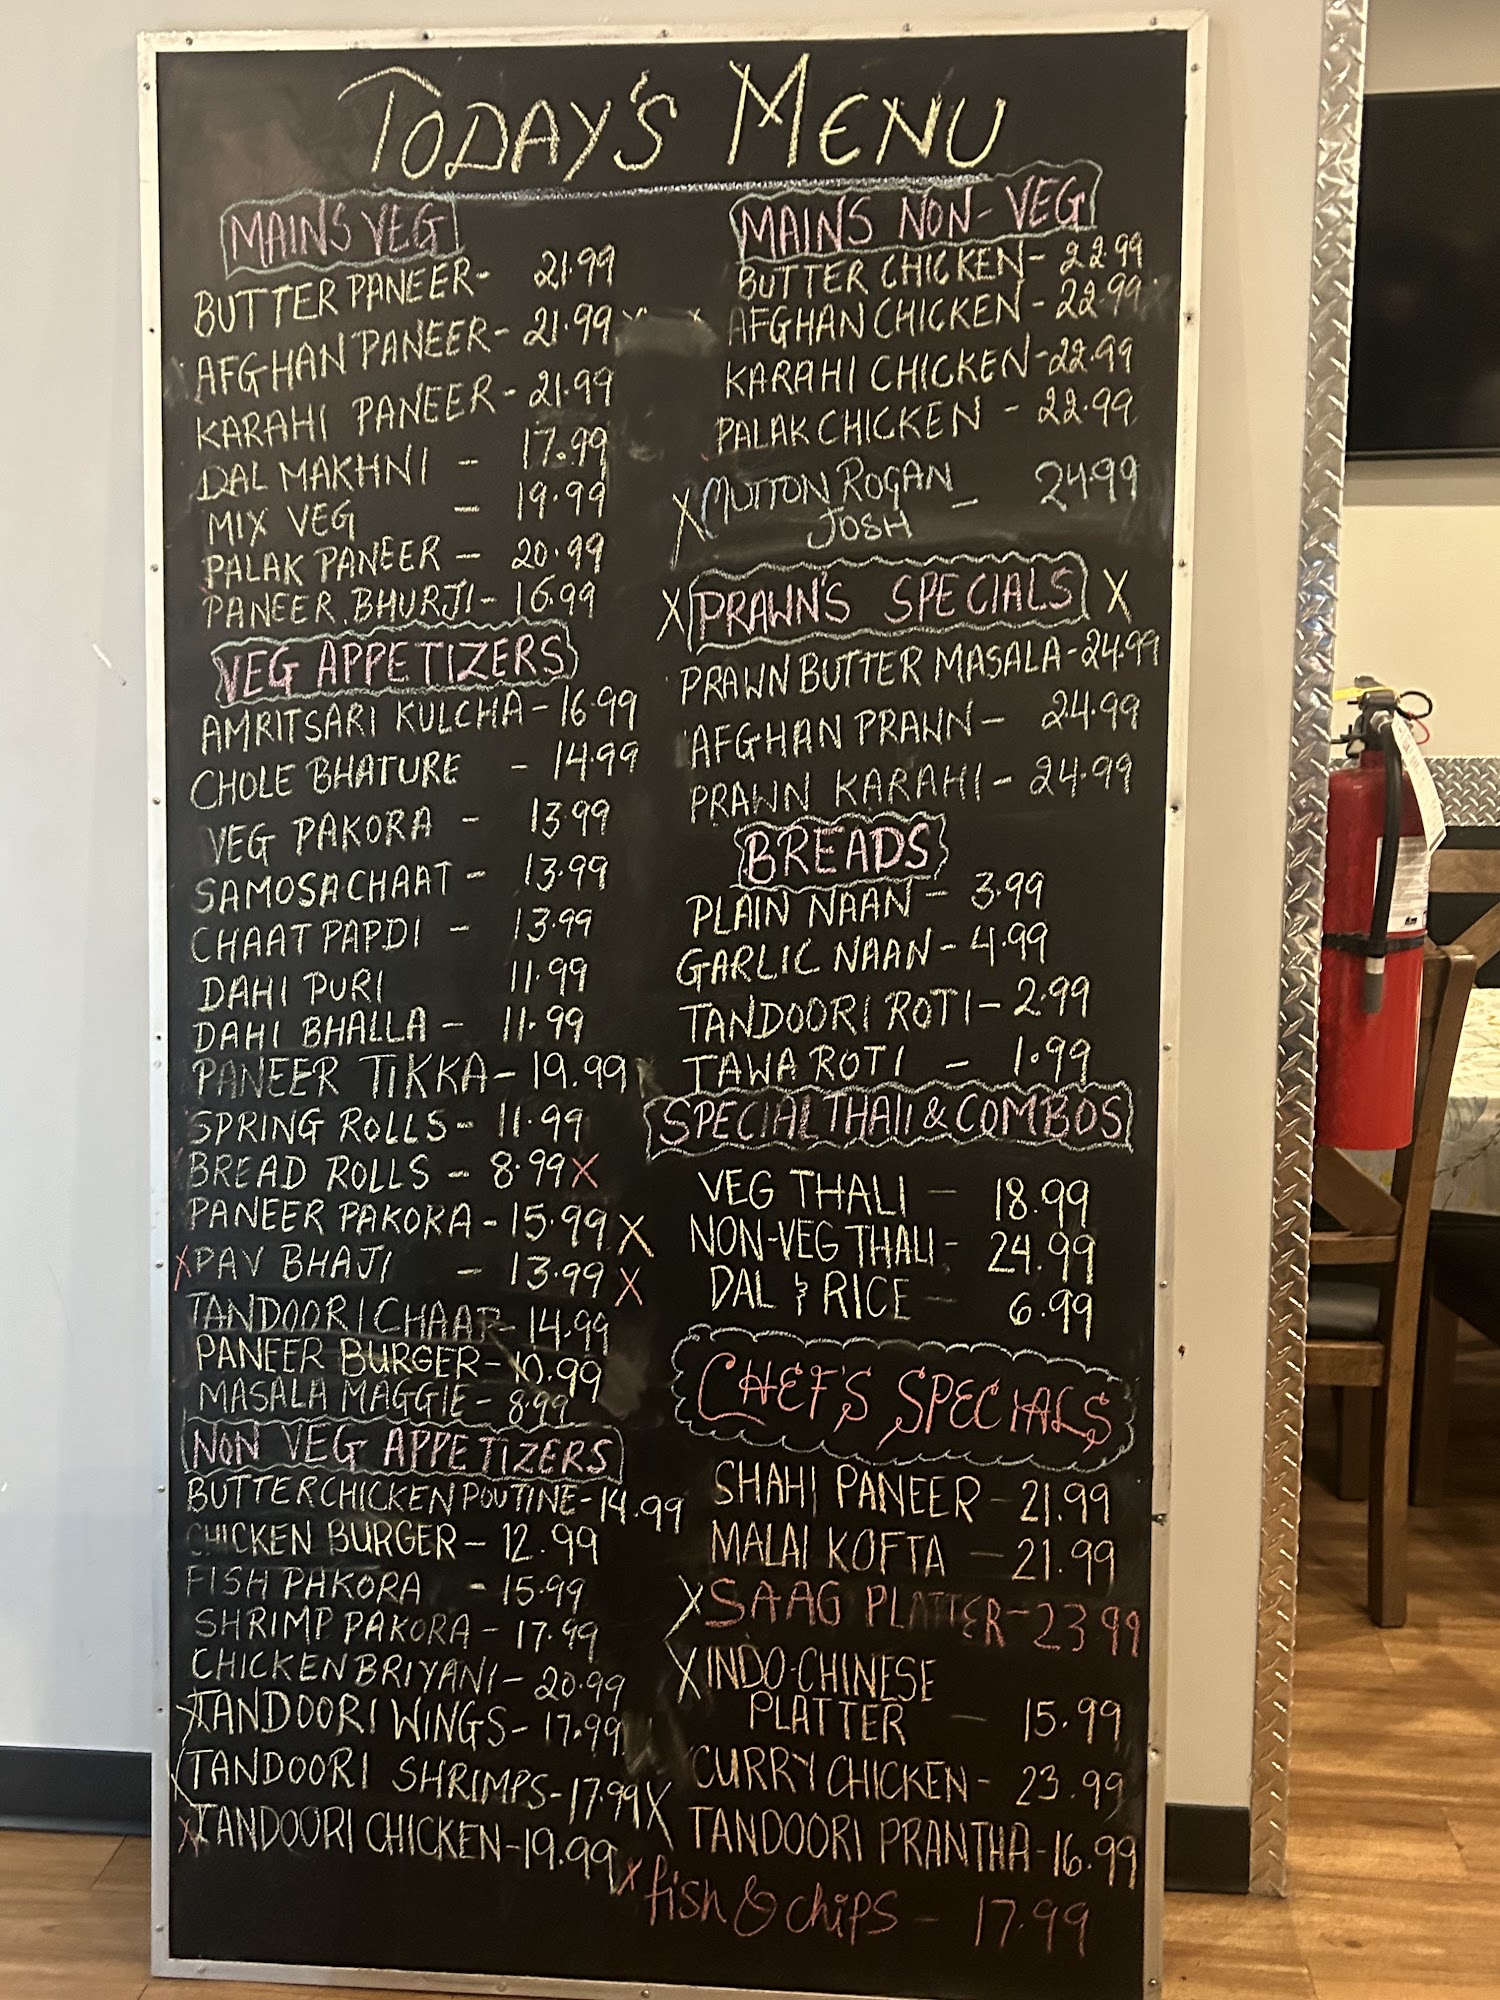 TODAY'S MENU
MAINS VEG
BUTTER PANEER- 21.99
AFGHAN PANEER- 21.99
KARAHI PANEER- 21.99
DAL MAKHNI - 17.99
MIX VEG - 19.99
PALAK PANEER - 20.99
PANEER BHURJI- 16.99
VEG APPETIZERS
AMRITSARI KULCHA- 16.99
CHOLE BHATURE - 14.99
VEG PAKORA - 13.99
SAMOSA CHAAT - 13.99
CHAAT PAPDI - 13.99
DAHI PURI 11.99
DAHI BHALLA - 11.99
PANEER TIKKA- 19.99
SPRING ROLLS- 11.99
BREAD ROLLS - 8.99 X
PANEER PAKORA - 15.99 X
X PAV BHAJI - 13.99 X
TANDOORI CHAAP- 14.99
PANEER BURGER- 10.99
MASALA MAGGIE- 8.99
NON VEG APPETIZERS
BUTTER CHICKEN POUTINE-14.99
CHICKEN BURGER- 12.99
FISH PAKORA - 15.99
SHRIMP PAKORA - 17.99
CHICKEN BRIYANI- 20.99
X TANDOORI WINGS- 17.99
X TANDOORI SHRIMPS-17.99 X
X TANDOORI CHICKEN-19.99
MAINS NON-VEG
BUTTER CHICKEN- 22.99
X AFGHAN CHICKEN - 22.99
KARAHI CHICKEN-22.99
PALAK CHICKEN - 22.99
X MUTTON ROGAN - 24.99
JOSH
X PRAWN'S SPECIALS X
PRAWN BUTTER MASALA-24.99
AFGHAN PRAWN- 24.99
PRAWN KARAHI- 24.99
BREADS
PLAIN NAAN- 3.99
GARLIC NAAN- 4.99
TANDOORI ROTI- 2.99
TAWA ROTI - 1.99
SPECIAL THALI & COMBOS
VEG THALI - 18.99
NON-VEG THALI- 24.99
DAL & RICE - 6.99
CHEF'S SPECIALS
SHAHI PANEER - 21.99
MALAI KOFTA - 21.99
X SAAG PLATTER-23.99
X INDO-CHINESE
PLATTER - 15.99
CURRY CHICKEN- 23.99
TANDOORI PRANTHA-16.99
X fish & chips - 17.99